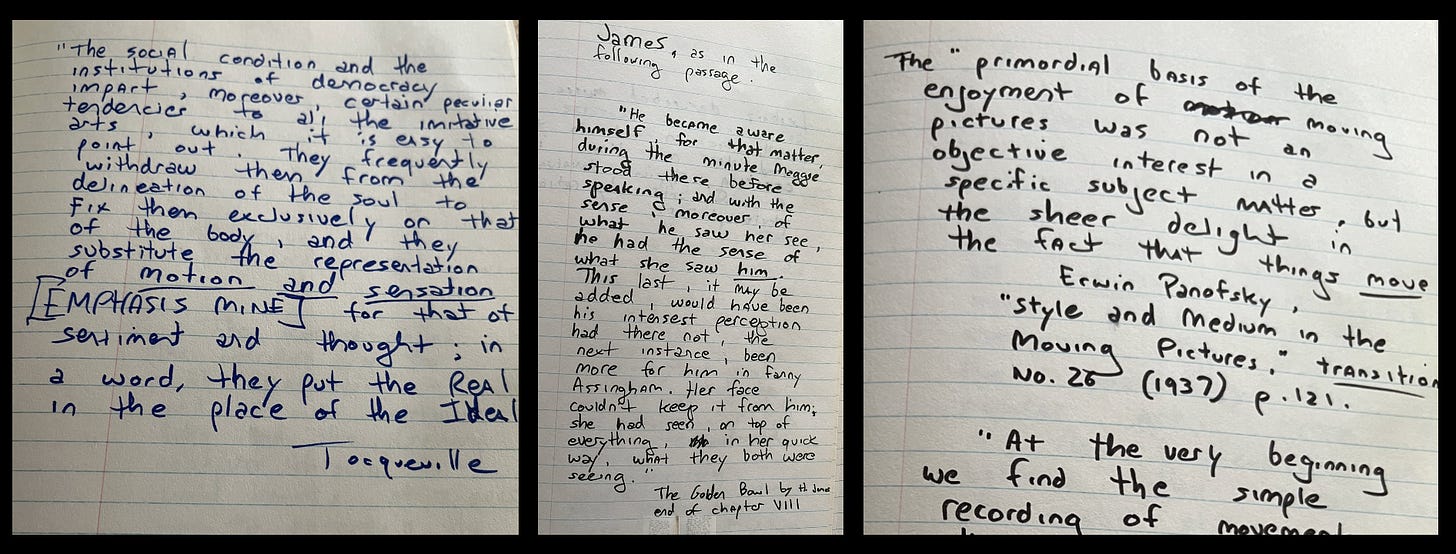 "The social condition and the
institutions of democracy
impart, moreover, certain peculiar
tendencies to all the imitative
arts, which it is easy to
point out. They frequently
withdraw them from the
delineation of the soul to
fix them exclusively on that
of the body, and they
substitute the representation
of motion and sensation
[EMPHASIS MINE] for that of
sentiment and thought; in
a word, they put the Real
in the place of the Ideal
Tocqueville
James, as in the
following passage.
"He became aware
himself, for that matter,
during the minute Maggie
stood there before
speaking; and with the
sense, moreover, of
what he saw her see,
he had the sense of
what she saw him.
This last, it may be
added, would have been
his intensest perception
had there not, the
next instance, been
more for him in Fanny
Assingham. Her face
couldn't keep it from him;
she had seen, on top of
everything, in her quick
way, what they both were
seeing."
The Golden Bowl by H James
end of chapter VIII
The "primordial basis of the
enjoyment of moving
pictures was not an
objective interest in a
specific subject matter, but
the sheer delight in
the fact that things move
Erwin Panofsky,
"Style and Medium in the
Moving Pictures," transition
No. 26 (1937) p.121.
"At the very beginning
we find the simple
recording of movement